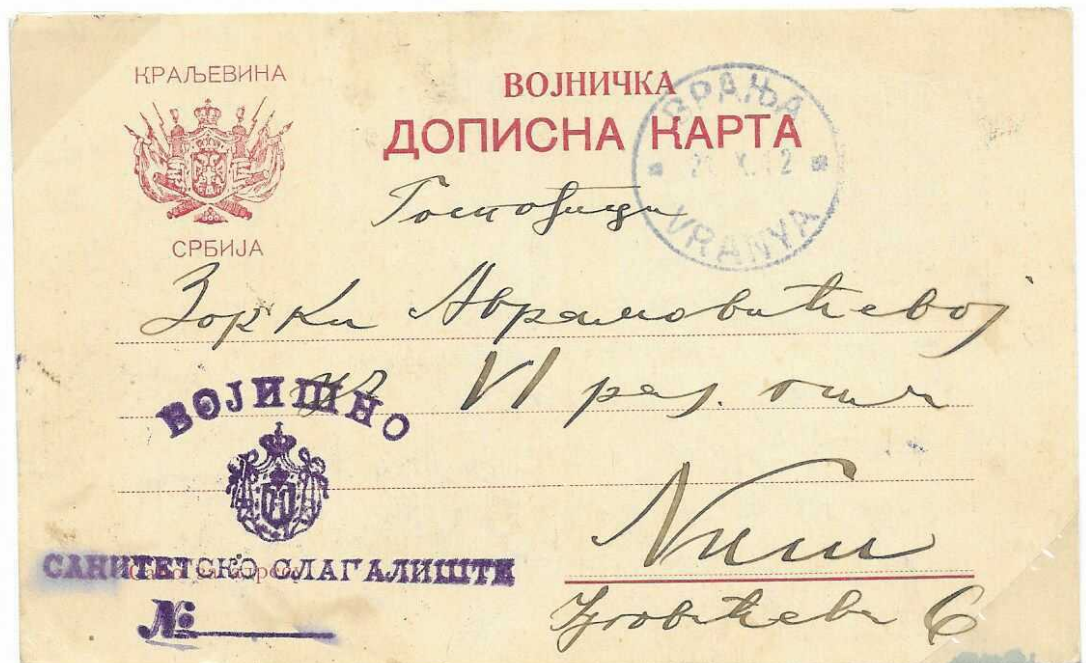 КРАЉЕВИНА
СРБИЈА
ВОЈНИЧКА
ДОПИСНА КАРТА
ВРАЊА
X. 12
VRANYA
Госпођици
Зорки Аврамовићевој
уч VI раз.
Ниш
ВОЈИШНО
САНИТЕТСКО СЛАГАЛИШТЕ
№
6